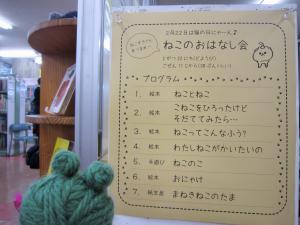 2月22日は猫の日にゃ～ん♪
ねこのおはなし会
プログラム
1. 絵本 ねことねこ
2. 絵本 こねこをひろったけど
そだててみたら…
3. 絵本 ねこってこんなふう?
4. 絵本 わたしねこがかいたいの
5. 手遊び ねこのこ
6. 絵本 おにゃけ
7. 紙芝居 まねきねこのたま